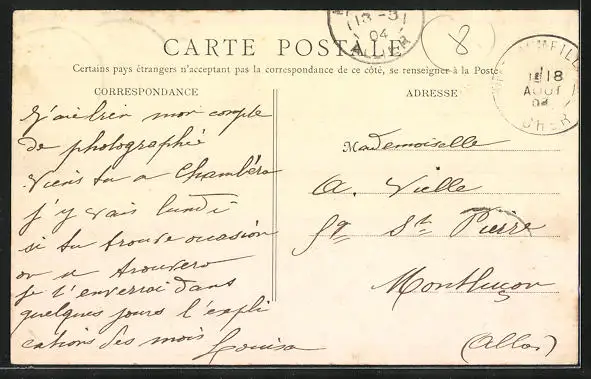 CARTE POSTALE
Certains pays étrangers n'acceptant pas la correspondance de ce côté, se renseigner à la Poste
CORRESPONDANCE
J'ai bien mon compte
de photographié
Viens tu a Chambéra
j'y vais lundi
si tu trouve occasion
on a trouvera
je t'enverrai dans
quelques jours l'expli
cations des mois
Louisa
ADRESSE
Mademoiselle
A. Vielle
Fg St Pierre
Montluçon
(Allier)
8
13 - 8
04
18
AOUT
04
CHER